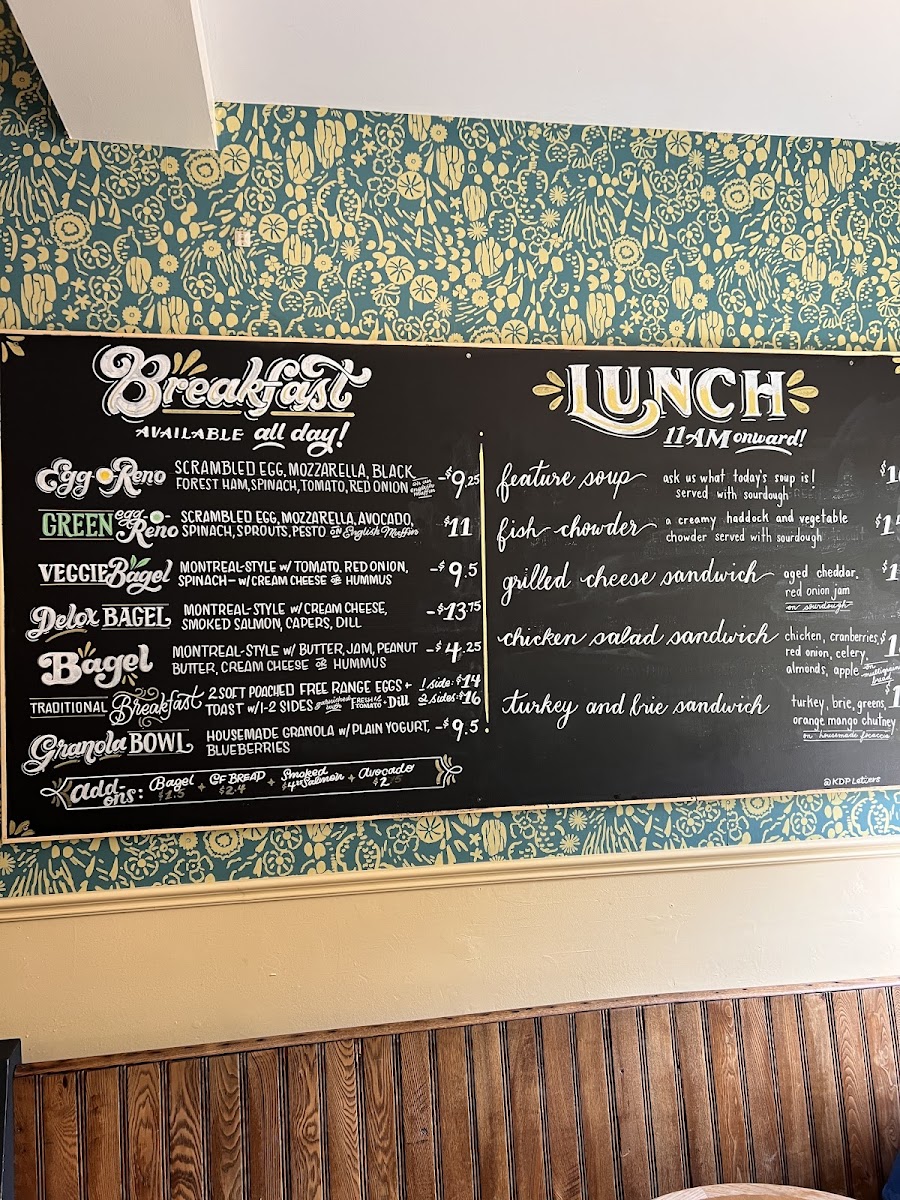 Breakfast
AVAILABLE all day!
Egg Reno
SCRAMBLED EGG, MOZZARELLA, BLACK
FOREST HAM, SPINACH, TOMATO, RED ONION on an english muffin
-$9.25
GREEN egg Reno
SCRAMBLED EGG, MOZZARELLA, AVOCADO,
SPINACH, SPROUTS, PESTO on English Muffin
$11
VEGGIE Bagel
MONTREAL-STYLE w/ TOMATO, RED ONION,
SPINACH - w/ CREAM CHEESE OR HUMMUS
-$9.5
Delox BAGEL
MONTREAL-STYLE w/ CREAM CHEESE,
SMOKED SALMON, CAPERS, DILL
-$13.75
Bagel
MONTREAL-STYLE w/ BUTTER, JAM, PEANUT
BUTTER, CREAM CHEESE OR HUMMUS
-$4.25
TRADITIONAL Breakfast
2 SOFT POACHED FREE RANGE EGGS + 1 side: $14
TOAST w/ 1-2 SIDES garnished with FRESH TOMATO + Dill 2 sides: $16
Granola BOWL
HOUSEMADE GRANOLA w/ PLAIN YOGURT,
BLUEBERRIES
-$9.5
add-ons: Bagel $1.5 + GF BREAD $2.4 + Smoked Salmon $4 + Avocado $2
LUNCH
11AM onward!
feature soup
ask us what today's soup is!
served with sourdough
fish chowder
a creamy haddock and vegetable
chowder served with sourdough
grilled cheese sandwich
aged cheddar,
red onion jam
on sourdough
chicken salad sandwich
chicken, cranberries,
red onion, celery,
almonds, apple on multigrain bread
turkey and brie sandwich
turkey, brie, greens,
orange mango chutney
on housemade focaccia
@KDP Letters